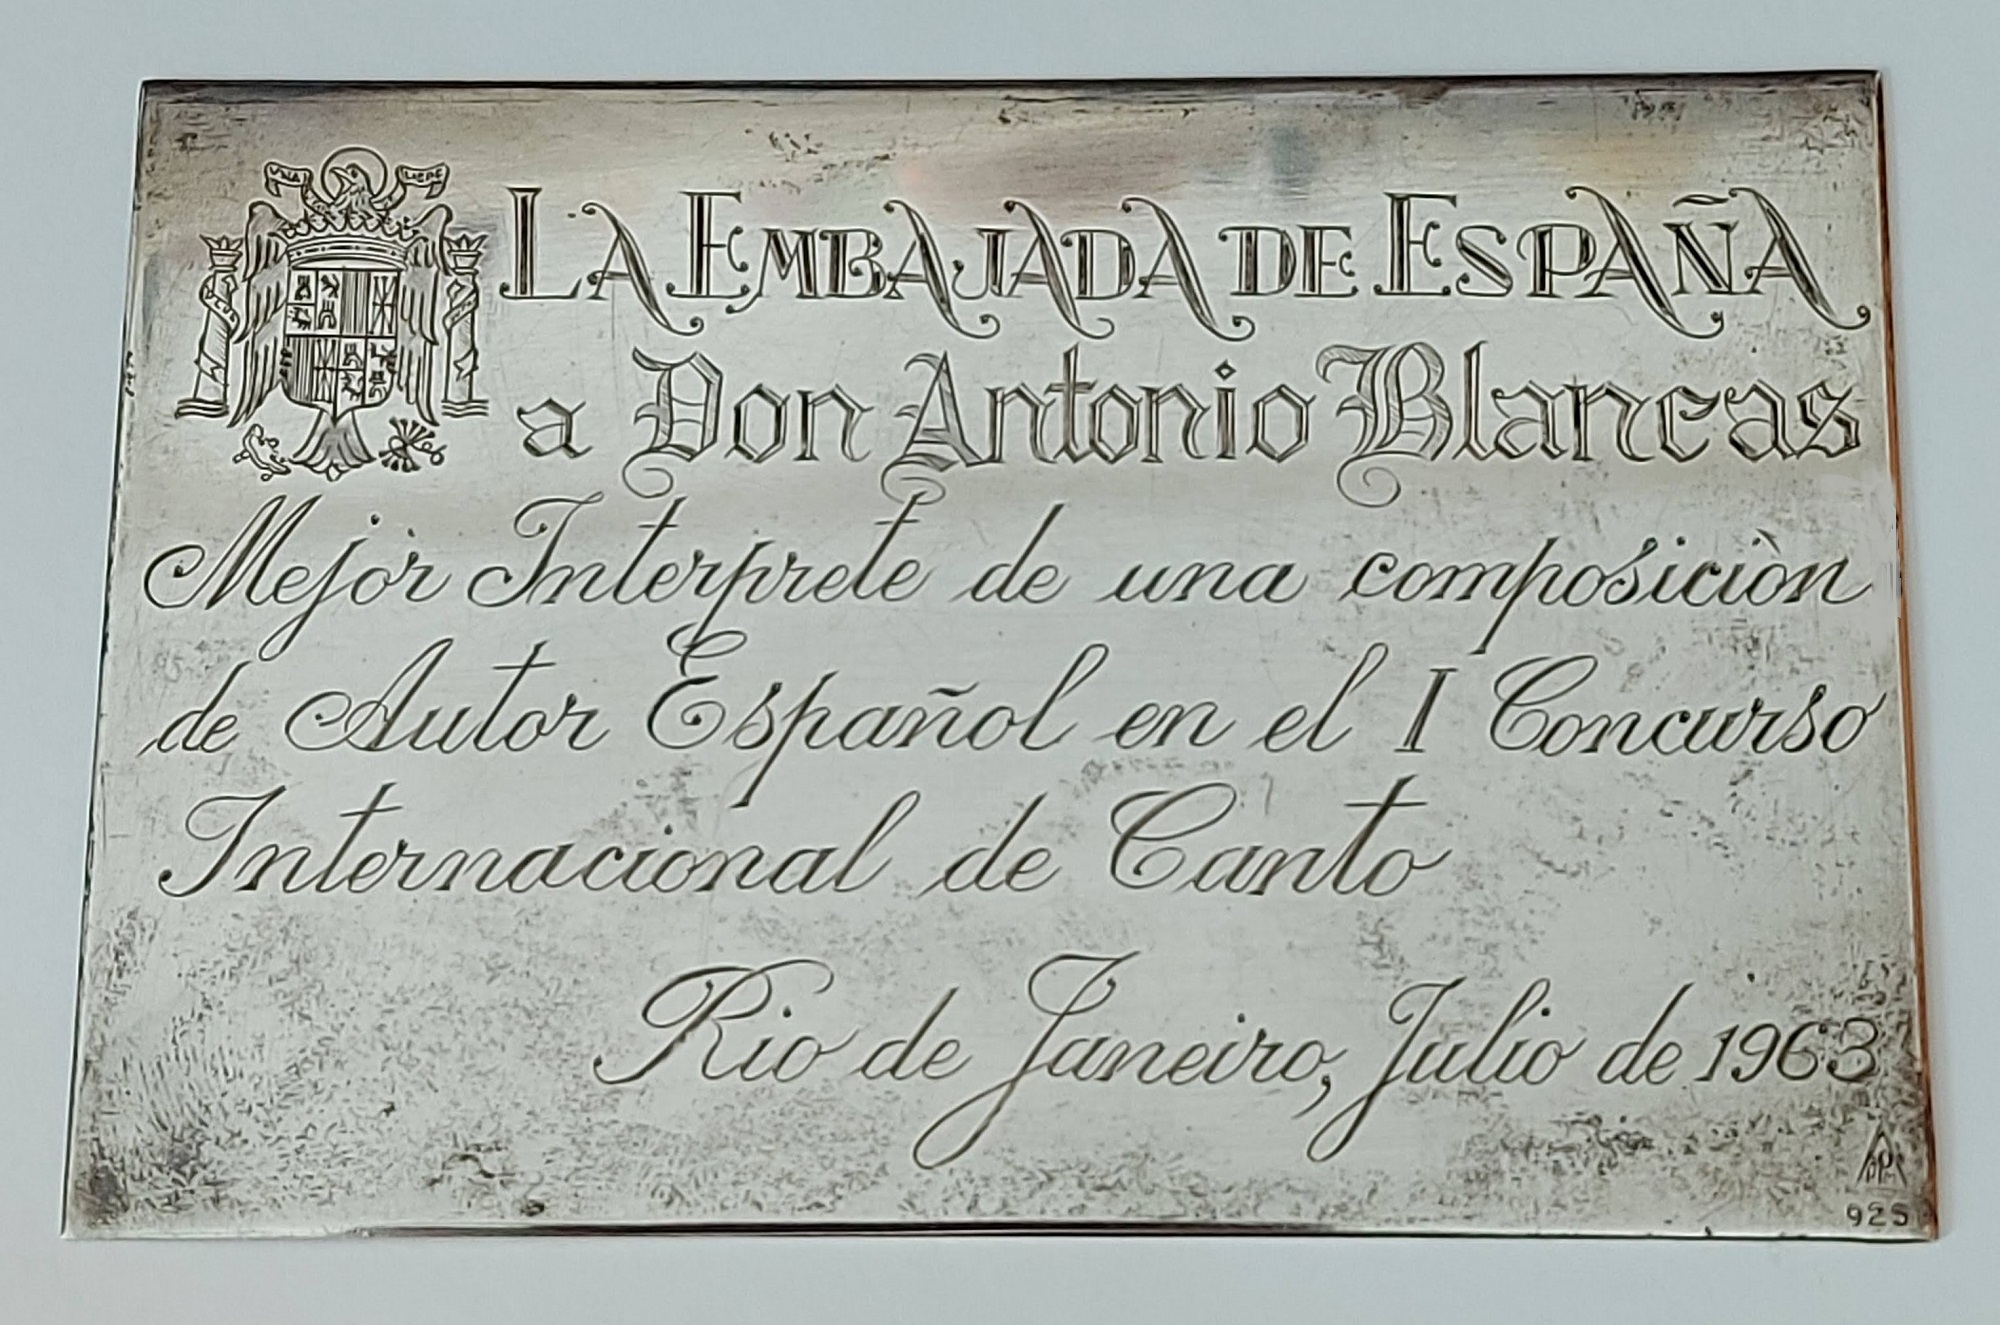 UNA LIBRE
LA EMBAJADA DE ESPAÑA
a Don Antonio Blancas
Mejor Interprete de una composiciòn
de Autor Español en el I Concurso
Internacional de Canto
Rio de Janeiro, Julio de 1963
925